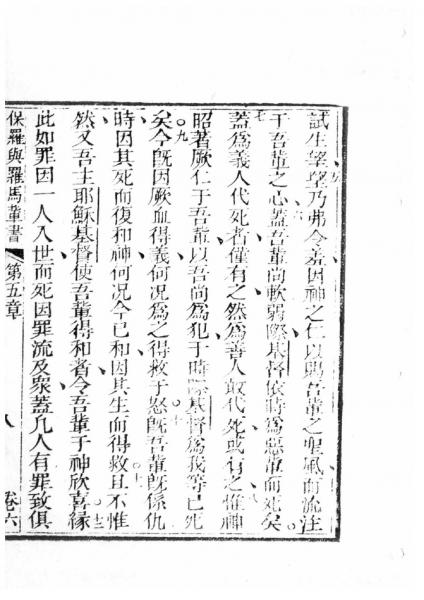 試生望望乃弗令羞因神之仁以賜吾輩之聖風而流注
于吾輩之心蓋吾輩尚軟弱際基督依時為惡輩而死矣。
蓋為義人代死者僅有之、然為善人敢代死或有之、惟神
昭著厥仁于吾輩以吾尚為犯于時際基督為我等已死
矣。九今既因厥血得義何況為之得救于怒既吾輩既係仇
時因其死而復和神何況今已和因其生而得救且不惟
然又吾主耶穌基督使吾輩得和者令吾輩于神欣喜。十二緣
此如罪因一人入世而死因罪流及眾蓋凡人有罪致俱
保羅與羅馬輩書 第五章 八 卷六